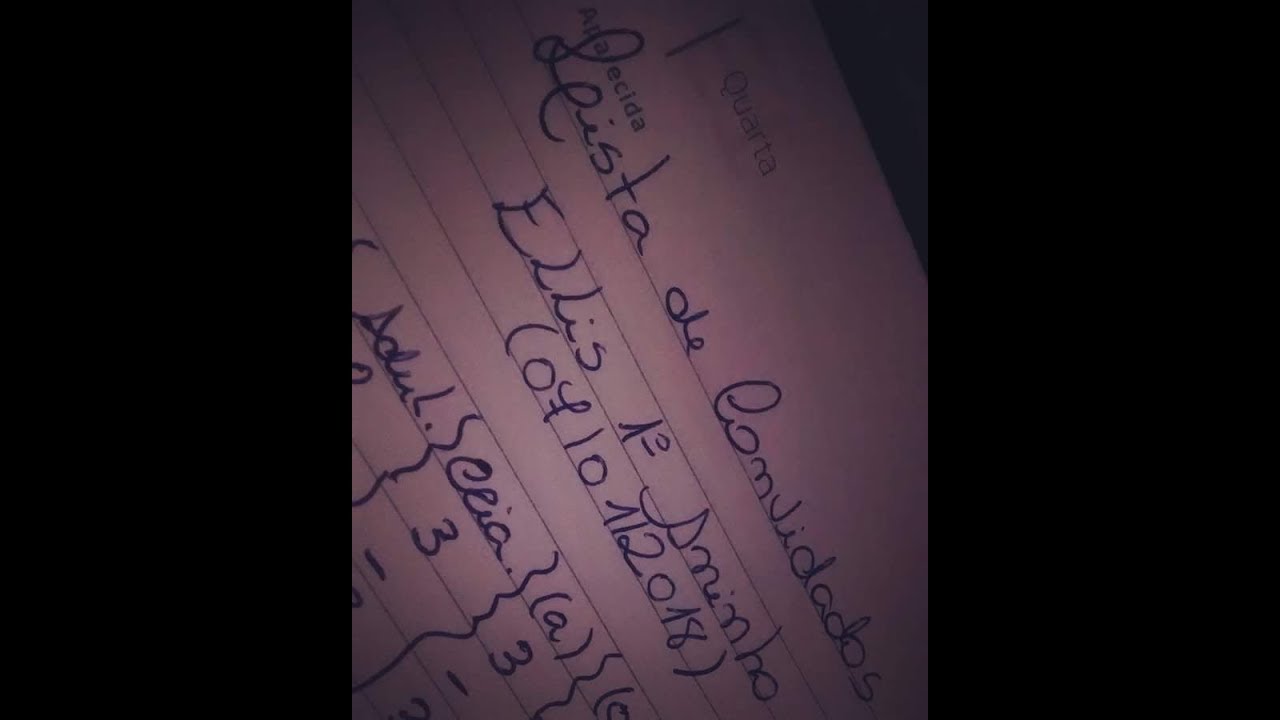 Quarta
Aparecida
Lista de Convidados
Ellis 1º Aninho
(07/01/2018)
(Adul.} Cria.} (a) }
3 } 3 }
- -